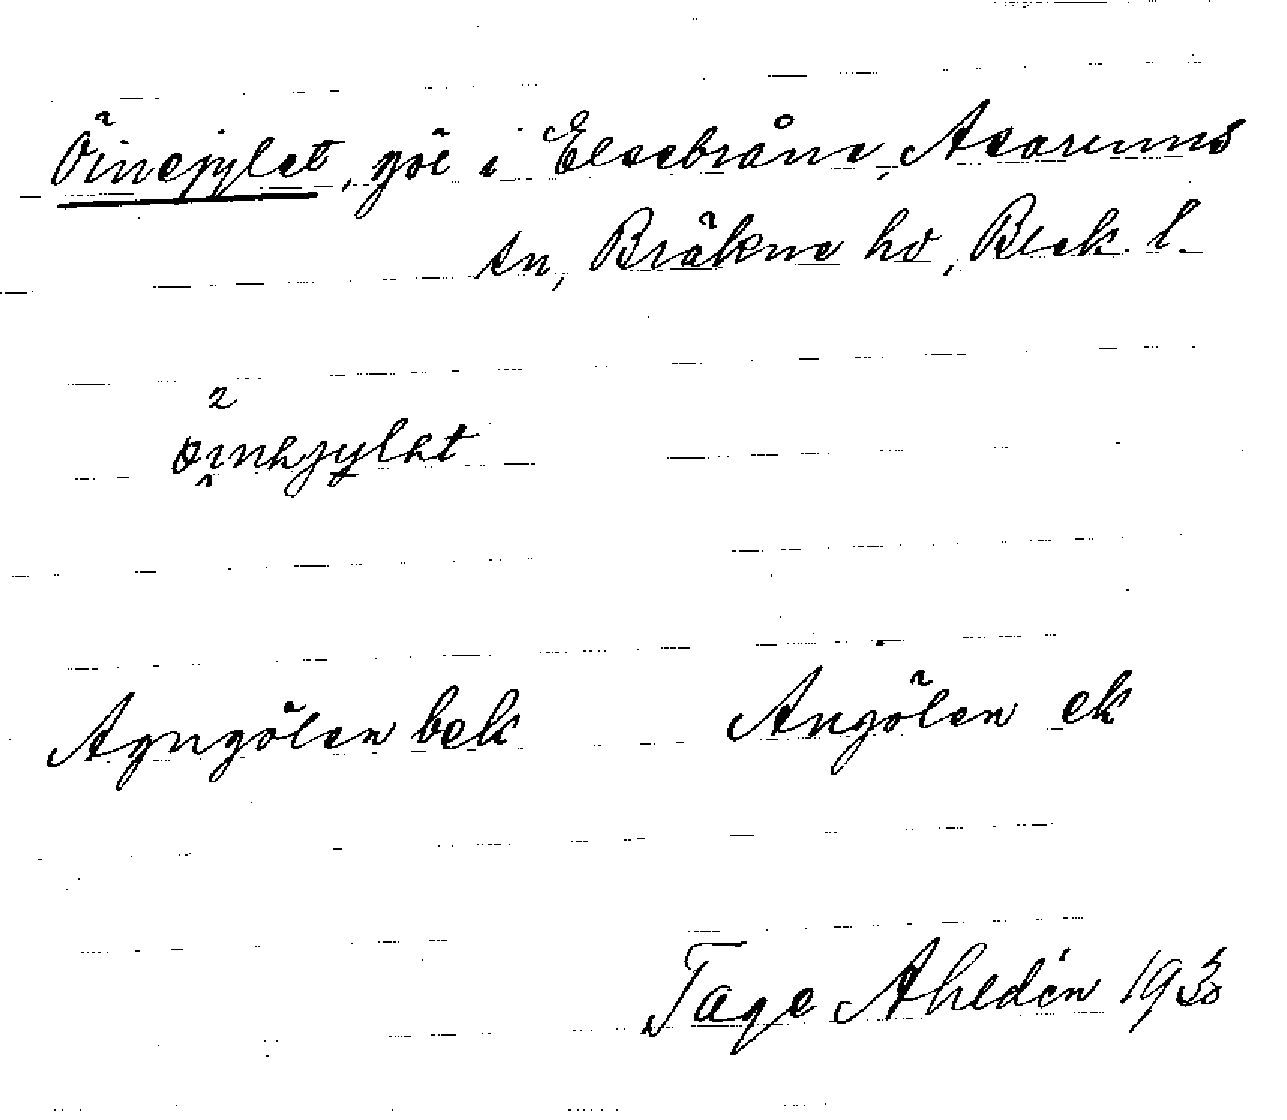 Öinegylet, göl i Elsebråne, Asarums
sn, Bräkne hd, Blek. l.
2
öinhjylet
Agngölen bek Angölen ek
Tage Ahldén 1930